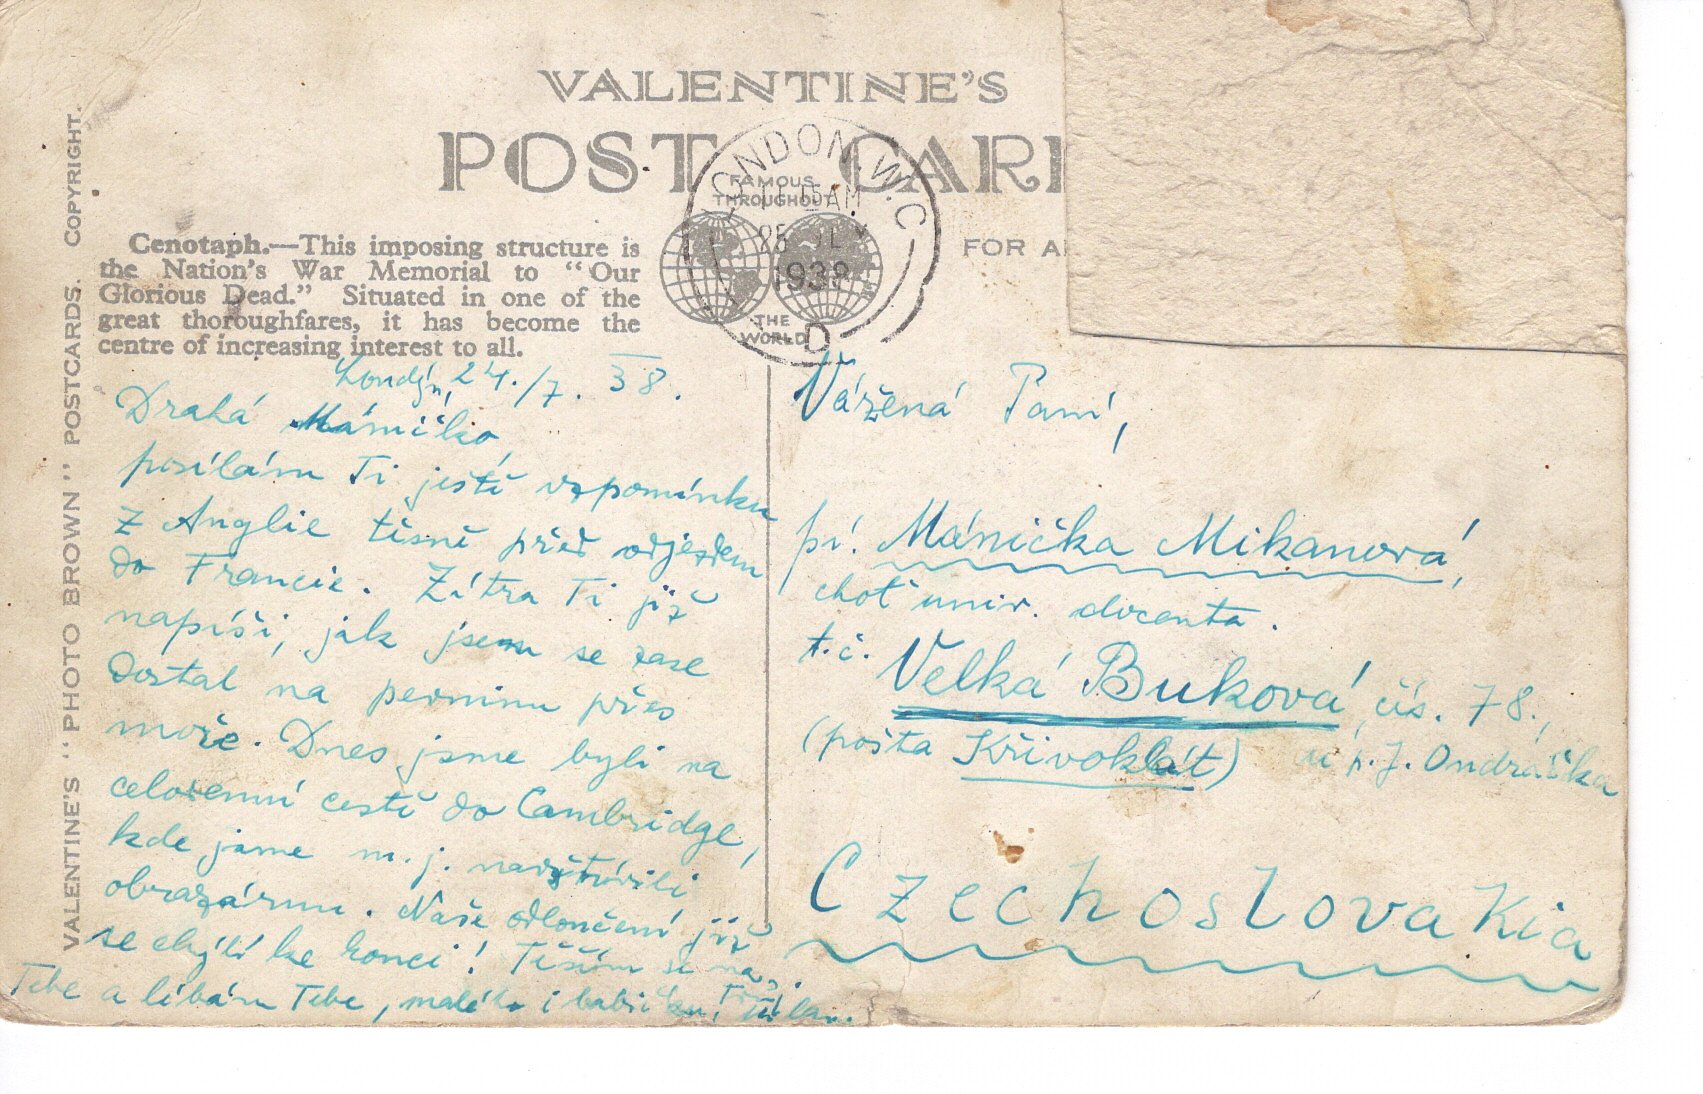 VALENTINE'S
POST CAR
FAMOUS
THROUGHOUT
THE
WORLD
LONDON. W.C.
11 15 AM
25 JL
1938
D
FOR A
VALENTINE'S "PHOTO BROWN" POSTCARDS. COPYRIGHT.
Cenotaph.—This imposing structure is
the Nation's War Memorial to "Our
Glorious Dead." Situated in one of the
great thoroughfares, it has become the
centre of increasing interest to all.
Londýn, 24./7. 38.
Drahá Máničko,
posílám Ti ještě vzpomínku
z Anglie těsně před odjezdem
do Francie. Zítra Ti již
napíši, jak jsem se zase
dostal na pevninu přes
moře. Dnes jsme byli na
celodenní cestě do Cambridge,
kde jsme m. j. navštívili
obrazárnu. Naše odloučení již
se chýlí ke konci! Těším se na
Tebe a líbám Tebe, malého i babičku,
Vážená Paní,
pí. Mánička Mikanová,
choť univ. docenta.
t. č. Velká Buková, čís. 78.,
(pošta Křivoklát) u p. J. Ondráčka
Czechoslovakia